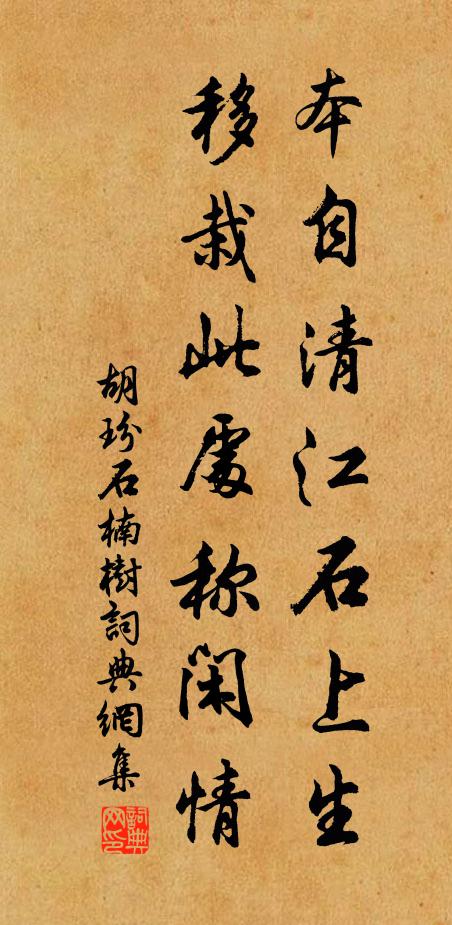 本自清江石上生
移栽此處称閑情
胡玢石楠樹詞典網集
詞典网印